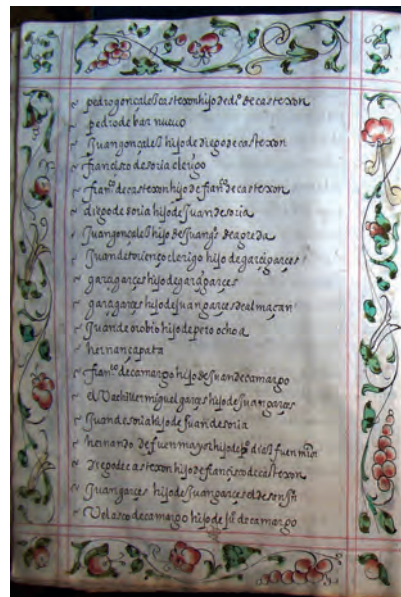 ~ pedro gonçalez castexon hijo de di° de castexon
~ pedro de bar nuevo
~ Juan gonçalez hijo de diego de castexon
~ francisco de soria clerigo
~ fran^co de castexon hijo de fran^co de castexon
~ diego de soria hijo de Juan de soria
~ Juan gonçalez hijo de Juan g^s de agreda
~ Juan de torienço clerigo hijo de garçi garçes
~ garçi garçes hijo de garçi garçes
~ garçi garçes hijo de Juan garçes de almaçan
~ Juan de orobio hijo de pero ochoa
~ hernan çapata
~ fran^co de camargo hijo de Juan de camargo
~ el bachiller miguel garçes hijo de Juan garçes
~ Juan de soria hijo de Juan de soria
~ hernando de fuenmayor hijo de
~ Diego de castexon hijo de françisco de castexon
~ Juan garçes hijo de Juan garçes el de
~ Velasco de camargo hijo de de camargo